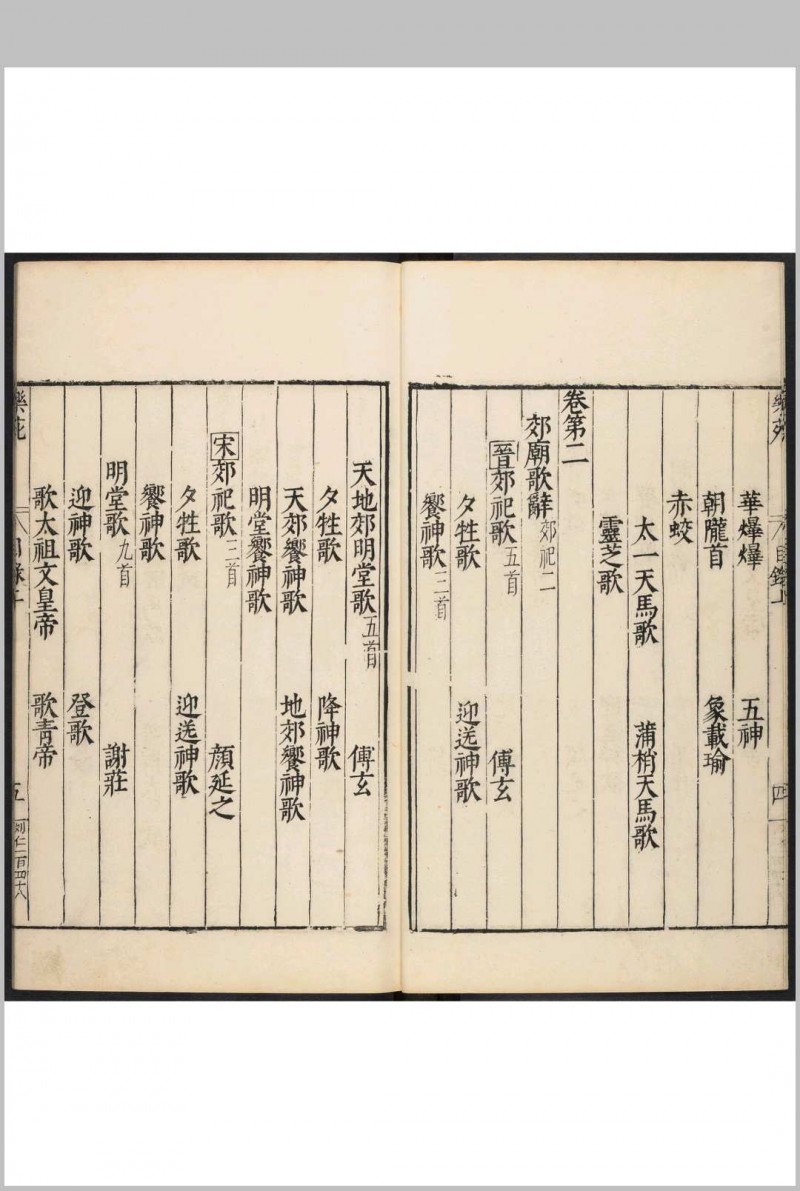 華爗爗 五神
朝隴首 象載瑜
赤蛟
太一天馬歌 蒲梢天馬歌
靈芝歌
卷第二
郊廟歌辭 郊祀二
晉郊祀歌 五首 傅玄
夕牲歌 迎送神歌
饗神歌 三首
天地郊明堂歌 五首 傅玄
夕牲歌 降神歌
天郊饗神歌 地郊饗神歌
明堂饗神歌
宋郊祀歌 三首 顔延之
夕牲歌 迎送神歌
饗神歌
明堂歌 九首 謝莊
迎神歌 登歌
歌太祖文皇帝 歌青帝